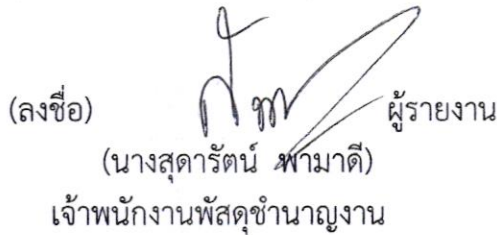 (ลงชื่อ) ผู้รายงาน
(นางสุดารัตน์ พามาดี)
เจ้าพนักงานพัสดุชำนาญงาน